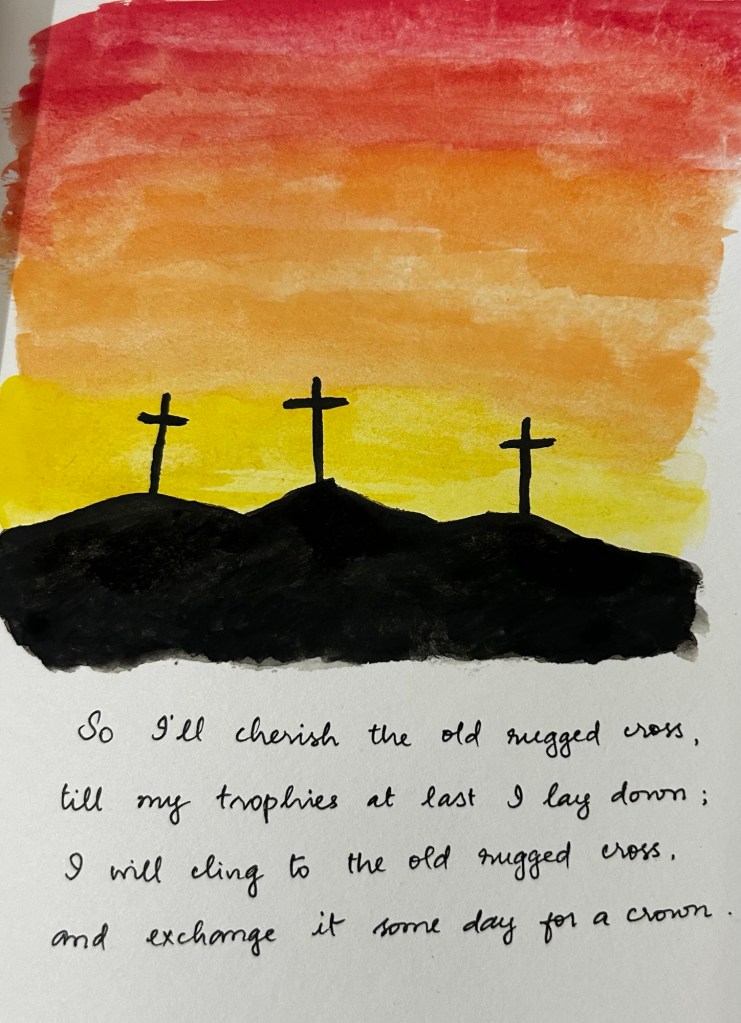 So I'll cherish the old rugged cross,
till my trophies at last I lay down;
I will cling to the old rugged cross,
and exchange it some day for a crown.